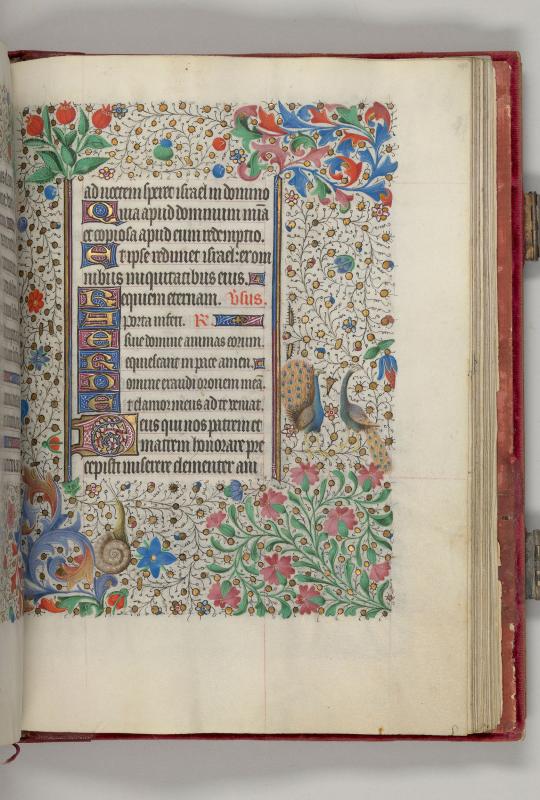 ad noctem speret israel in domino
Quia apud dominum mia
et copiosa apud eum redemptio.
Et ipse redimet israel: ex om
nibus iniquitatibus eius.
Requiem eternam. Vsus.
A porta inferi. R
Erue domine animas eorum.
Requiescant in pace amen.
Domine exaudi oronem mea.
Et clamor meus ad te veniat.
Deus qui nos patrem et
matrem honorare pre
cepisti miserere clementer ani